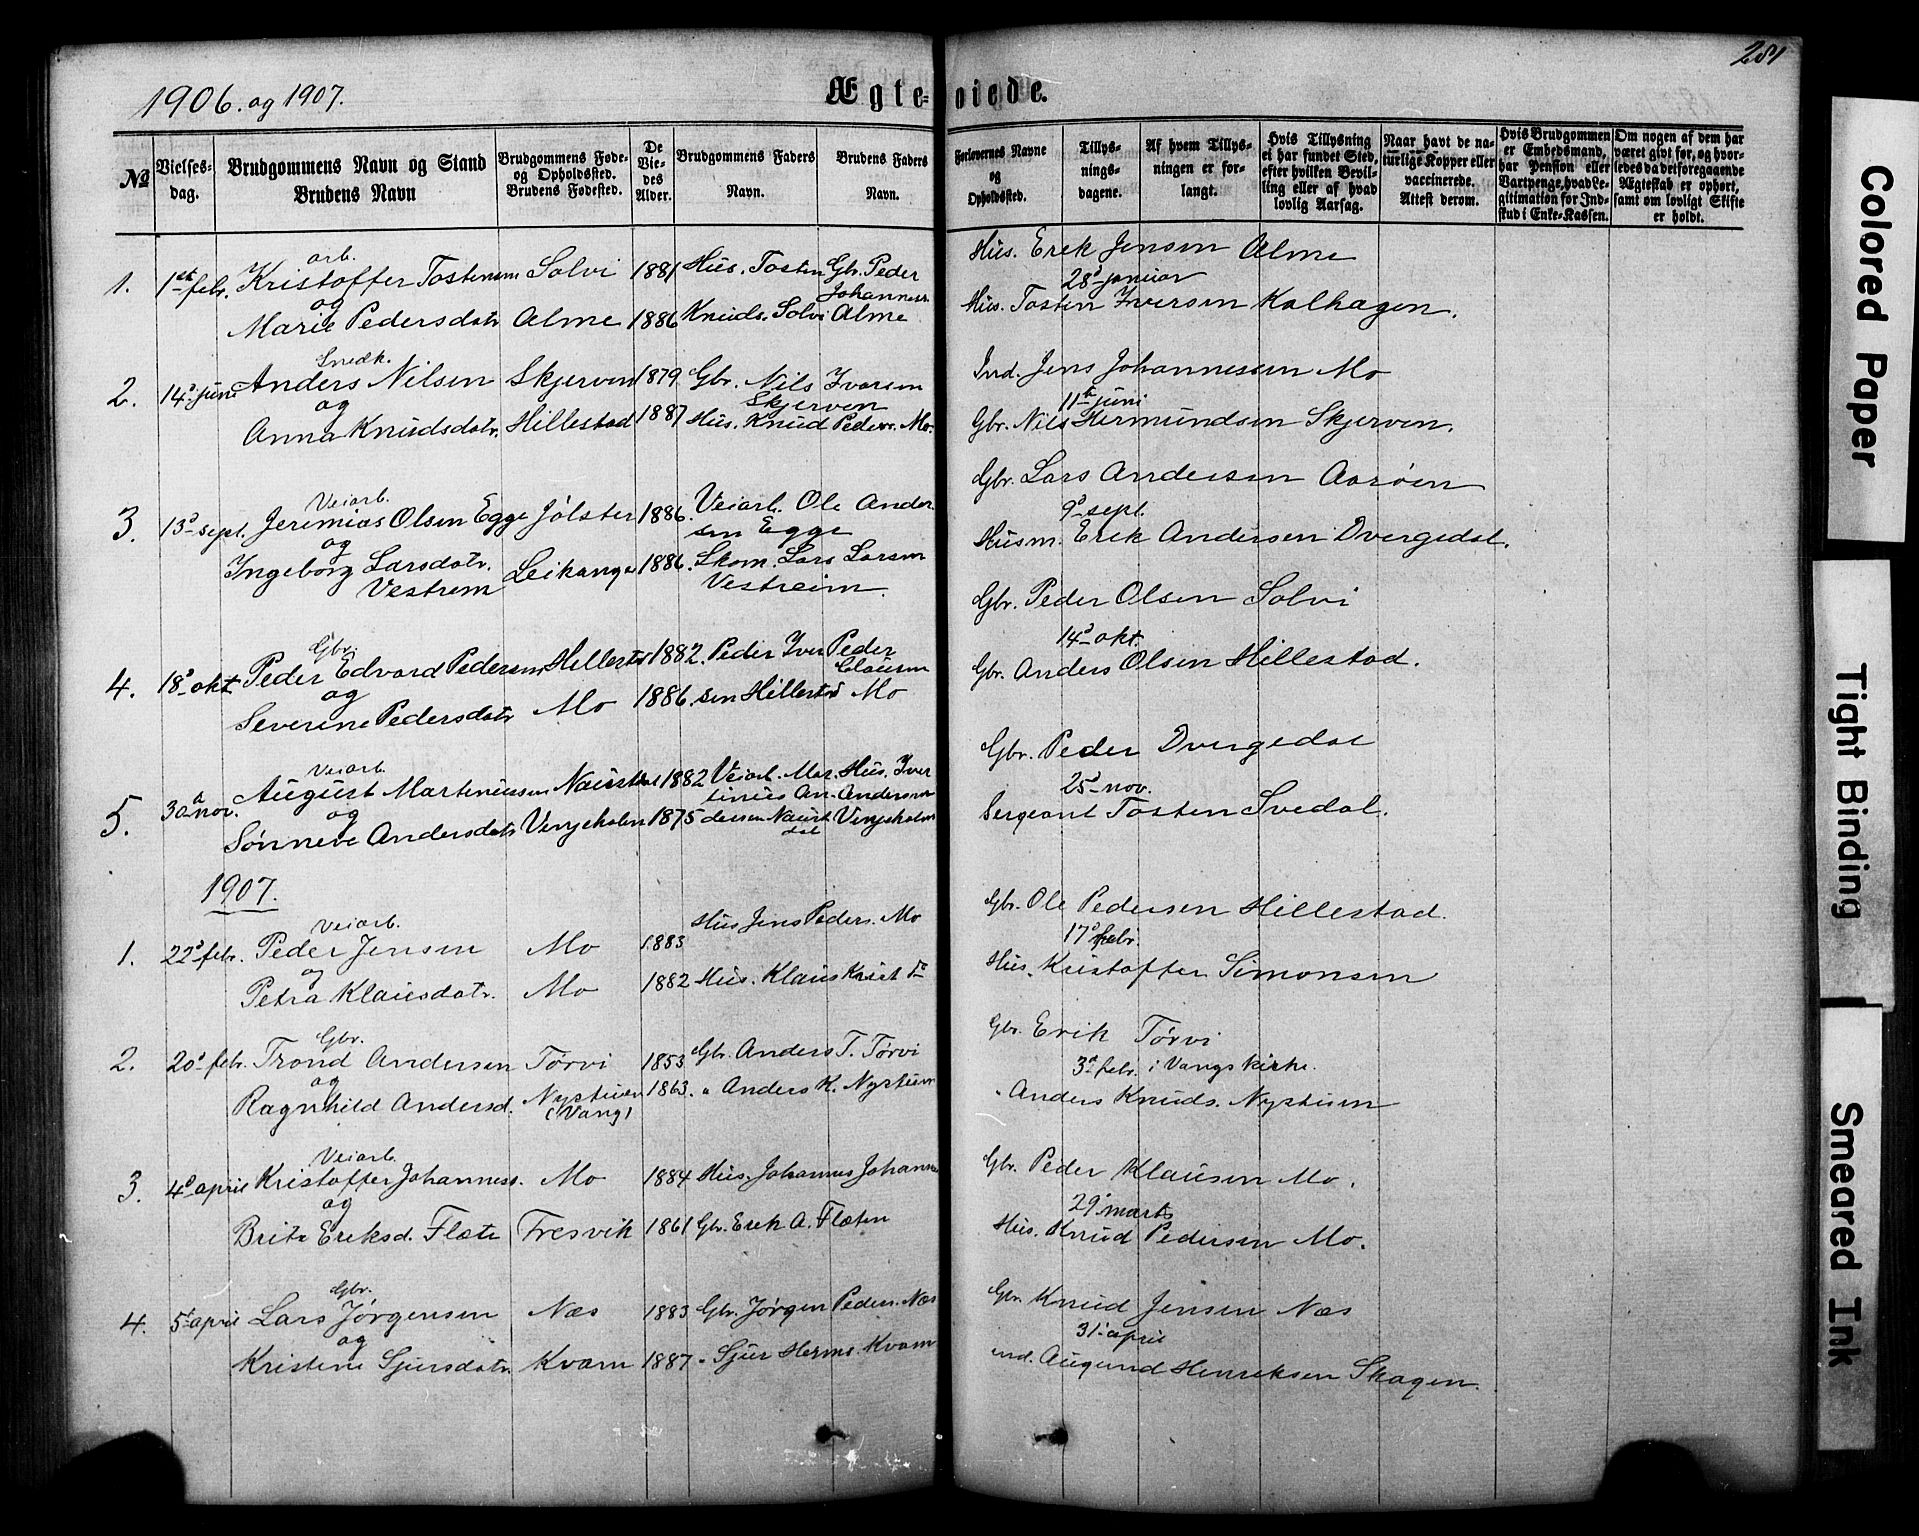 281
1906. og 1907.
Ægteviede.
№
Vielses-dag.
Brudgommens Navn og Stand
Brudens Navn
Brudgommens Føde- og Opholdssted.
Brudens Fødested.
De Viedes Alder.
Brudgommens Faders Navn.
Brudens Faders Navn.
Forlovernes Navne og Opholdssted.
Tillysningsdagene.
Af hvem Tillysningen er forlangt.
Hvis Tillysning ei har fundet Sted, efter hvilken Bevilling eller af hvad lovlig Aarsag.
Naar havt de naturlige Kopper eller vaccinerede. Attest derom.
Hvis Brudgommen er Embedsmand, har Pension eller Vartpenge, hvad Legitimation for Indskud i Enke-Kassen.
Om nogen af dem har været givt før, og hvorledes da det foregaaende Ægteskab er ophørt, samt om lovligt Skifte er holdt.
1. 1ste febr. arb. Kristoffer Tostensen Solvi 1881 Hus. Tosten Gb. Peder Johanness. Hus. Erek Jensen Alme
og 28d januar
Marie Pedersdatr Alme 1886 Knuds. Solvi Alme Hus. Tosten Iversen Kalhagen.
2. 14d juni Snedk. Anders Nilsen Skjerven 1879 Gbr. Nils Ivarsen Skjerven Ind. Jens Johannessen Mo
og 11te juni
Anna Knudsdatr. Hillestad 1887 Hus. Knud Peders. Mo. Gbr. Nils Hermundsen Skjerven.
3. 13d sept. Veiarb. Jeremias Olsen Egge Jølster 1886. Veiarb. Ole Andersen Egge Gbr. Lars Andersen Aarøen
og 9d sept.
Ingeborg Larsdatr. Vestrem Leikange 1886. Skom. Lars Larsen Vestreim. Husm. Erik Andersen Dvergedal.
4. 18d okt Gbr. Peder Edvard Pedersen Hillestd 1882. Peder Iver Peder Clausen Gbr. Peder Olsen Solvi
og 14d okt.
Severine Pedersdatr Mo 1886. sen Hillestd Mo Gbr. Anders Olsen Hillestad.
5. 30te nov. Veiarb. August Martinussen Naustdal 1882 Veiarb. Mar- Hus. Iver Gbr. Peder Dvergedal
og tinus An- Andersen 25d nov.
Sønneve Andersdatr Vengeholen 1875 dersen Naustdal Vengeholen Sergeant Tosten Svedal.
1907.
1. 22d febr. Veiarb. Peder Jensen Mo 1883 Hus Jens Peders. Mo Gbr. Ole Pedersen Hillestad.
og 17d febr.
Petra Klausdatr. Mo 1882 Hus. Klaus Krist do Hus. Kristoffer Simonsen
2. 20d febr. Gbr. Trond Andersen Tørvi 1853 Gb. Anders T. Tørvi Gbr. Erik Tørvi
og 3d febr. i Vangs kirke.
Ragnhild Andersd. Nystuen (Vang) 1863. " Anders K. Nystuen " Anders Knuds. Nystuen
3. 4d april Veiarb. Kristoffer Johanness. Mo 1884 Hus. Johannes Johannes Gbr. Peder Klausen Mo.
og 29d marts
Brite Eriksd. Flæte Fresvik 1861 Gb. Erek A. Flæten Hus. Knud Pedersen Mo.
4. 5te april Gbr. Lars Jørgensen Næs 1883 Gb. Jørgen Peders. Næs Gbr. Knud Jensen Næs
og 31d april
Kristine Sjursdatr. Kvam 1887 " Sjur Herms. Kvam ind. Augund Henriksen Skagen.
Colored Paper
Tight Binding
Smeared Ink